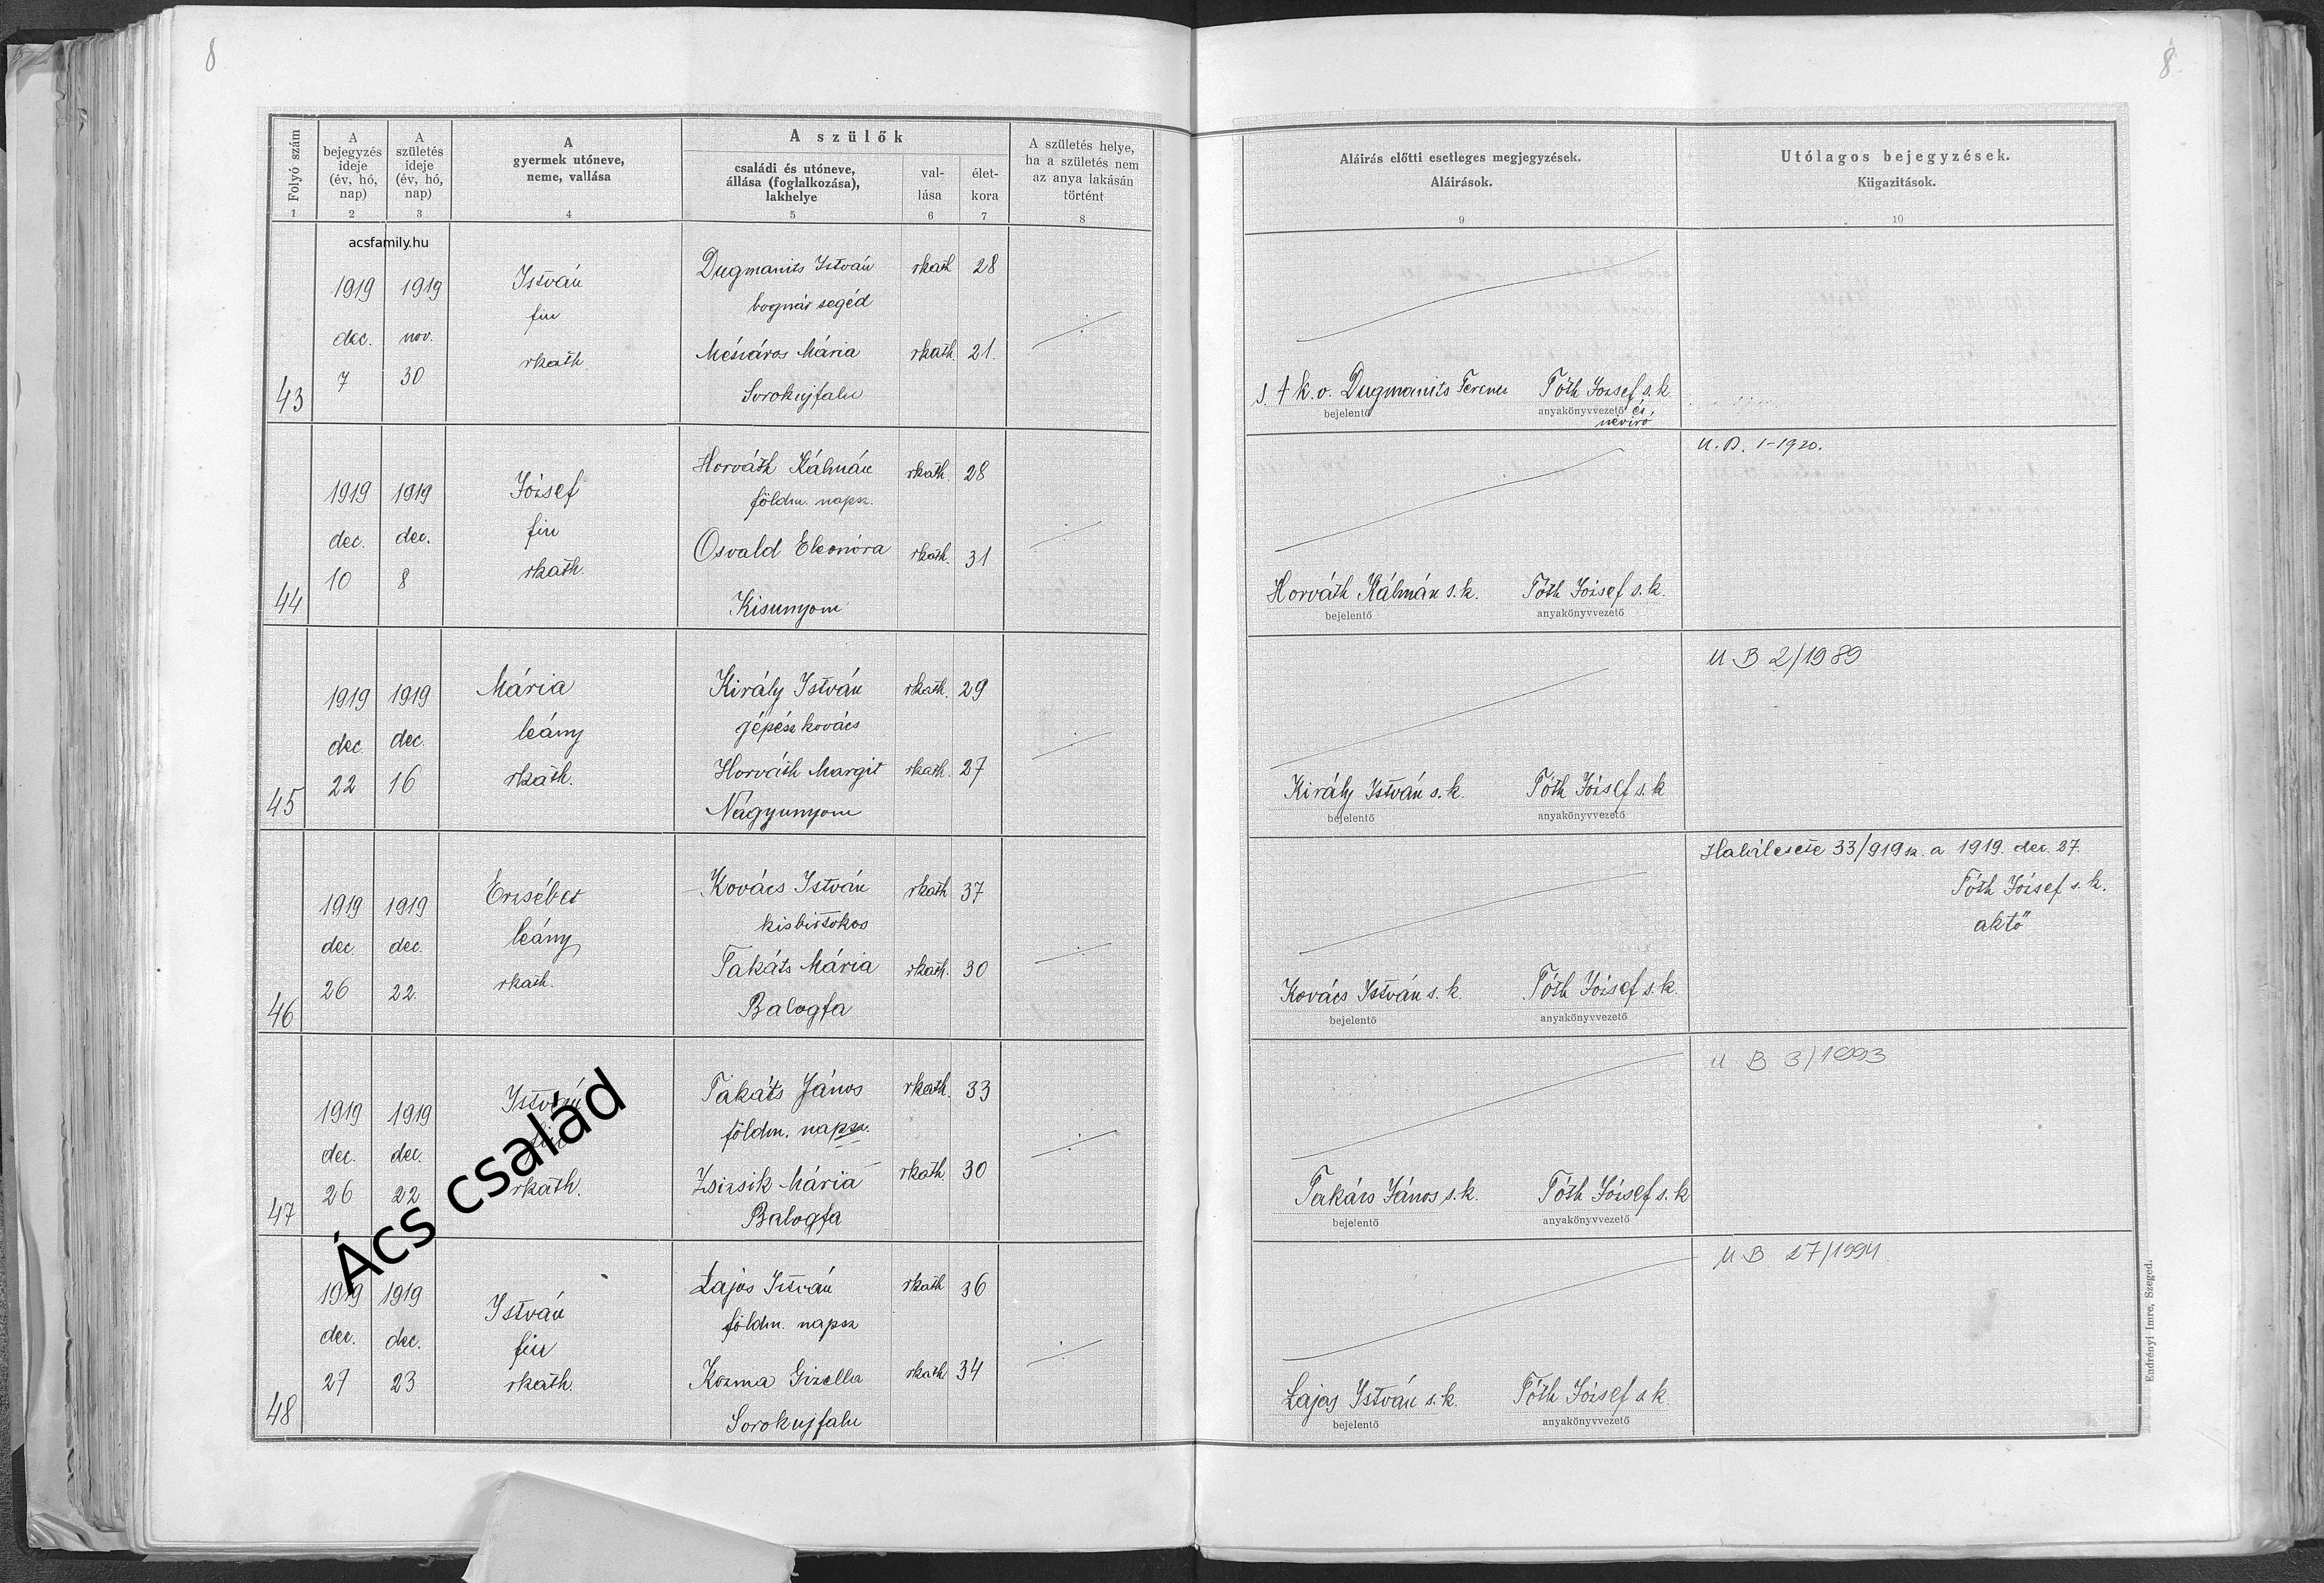 8
8
Folyó szám
1
A
bejegyzés
ideje
(év, hó,
nap)
2
A
születés
ideje
(év, hó,
nap)
3
A
gyermek utóneve,
neme, vallása
4
A szülők
családi és utóneve,
állása (foglalkozása),
lakhelye
5
val-
lása
6
élet-
kora
7
A születés helye,
ha a születés nem
az anya lakásán
történt
8
Aláirás előtti esetleges megjegyzések.
Aláirások.
9
Utólagos bejegyzések.
Kiigazitások.
10
acsfamily.hu
43
1919
dec.
7
1919
nov.
30
István
fiu
rkath.
Dugmanits István
bognár segéd
rkath
28
Mészáros Mária
rkath.
21.
Sorokujfalu
s. + k. v. Dugmanits Ferenc
bejelentő
Tóth József s. k.
anyakönyvvezető és
névíró
44
1919
dec.
10
1919
dec.
8
József
fiu
rkath.
Horváth Kálmán
földm. napsz.
rkath.
28
Osvald Eleonóra
rkath.
31
Kisunyom
Horváth Kálmán s. k.
bejelentő
Tóth József s. k.
anyakönyvvezető
U. B. 1-1920.
45
1919
dec.
22
1919
dec.
16
Mária
leány
rkath.
Király István
gépész kovács
rkath.
29
Horváth Margit
rkath.
27
Nagyunyom
Király István s. k.
bejelentő
Tóth József s. k
anyakönyvvezető
U B 2/1989
46
1919
dec.
26
1919
dec.
22.
Erzsébet
leány
rkath.
Kovács István
kisbirtokos
rkath
37
Takáts Mária
rkath.
30
Balogfa
Kovács István s. k.
bejelentő
Tóth József s. k.
anyakönyvvezető
Halálesete 33/919 sz. a 1919. dec. 27.
Tóth József s. k.
aktő
47
1919
dec.
26
1919
dec.
22
István
fiu
rkath.
Takáts János
földm. napsz.
rkath.
33
Zsizsik Mária
rkath.
30
Balogfa
Takács János s. k.
bejelentő
Tóth József s. k
anyakönyvvezető
U B 3/1993
Ács család
48
1919
dec.
27
1919
dec.
23
István
fiu
rkath.
Lajos István
földm. napsz
rkath
36
Kozma Gizella
rkath
34
Sorokujfalu
Lajos István s. k.
bejelentő
Tóth József s. k.
anyakönyvvezető
U B. 27/1994
Endrényi Imre, Szeged.